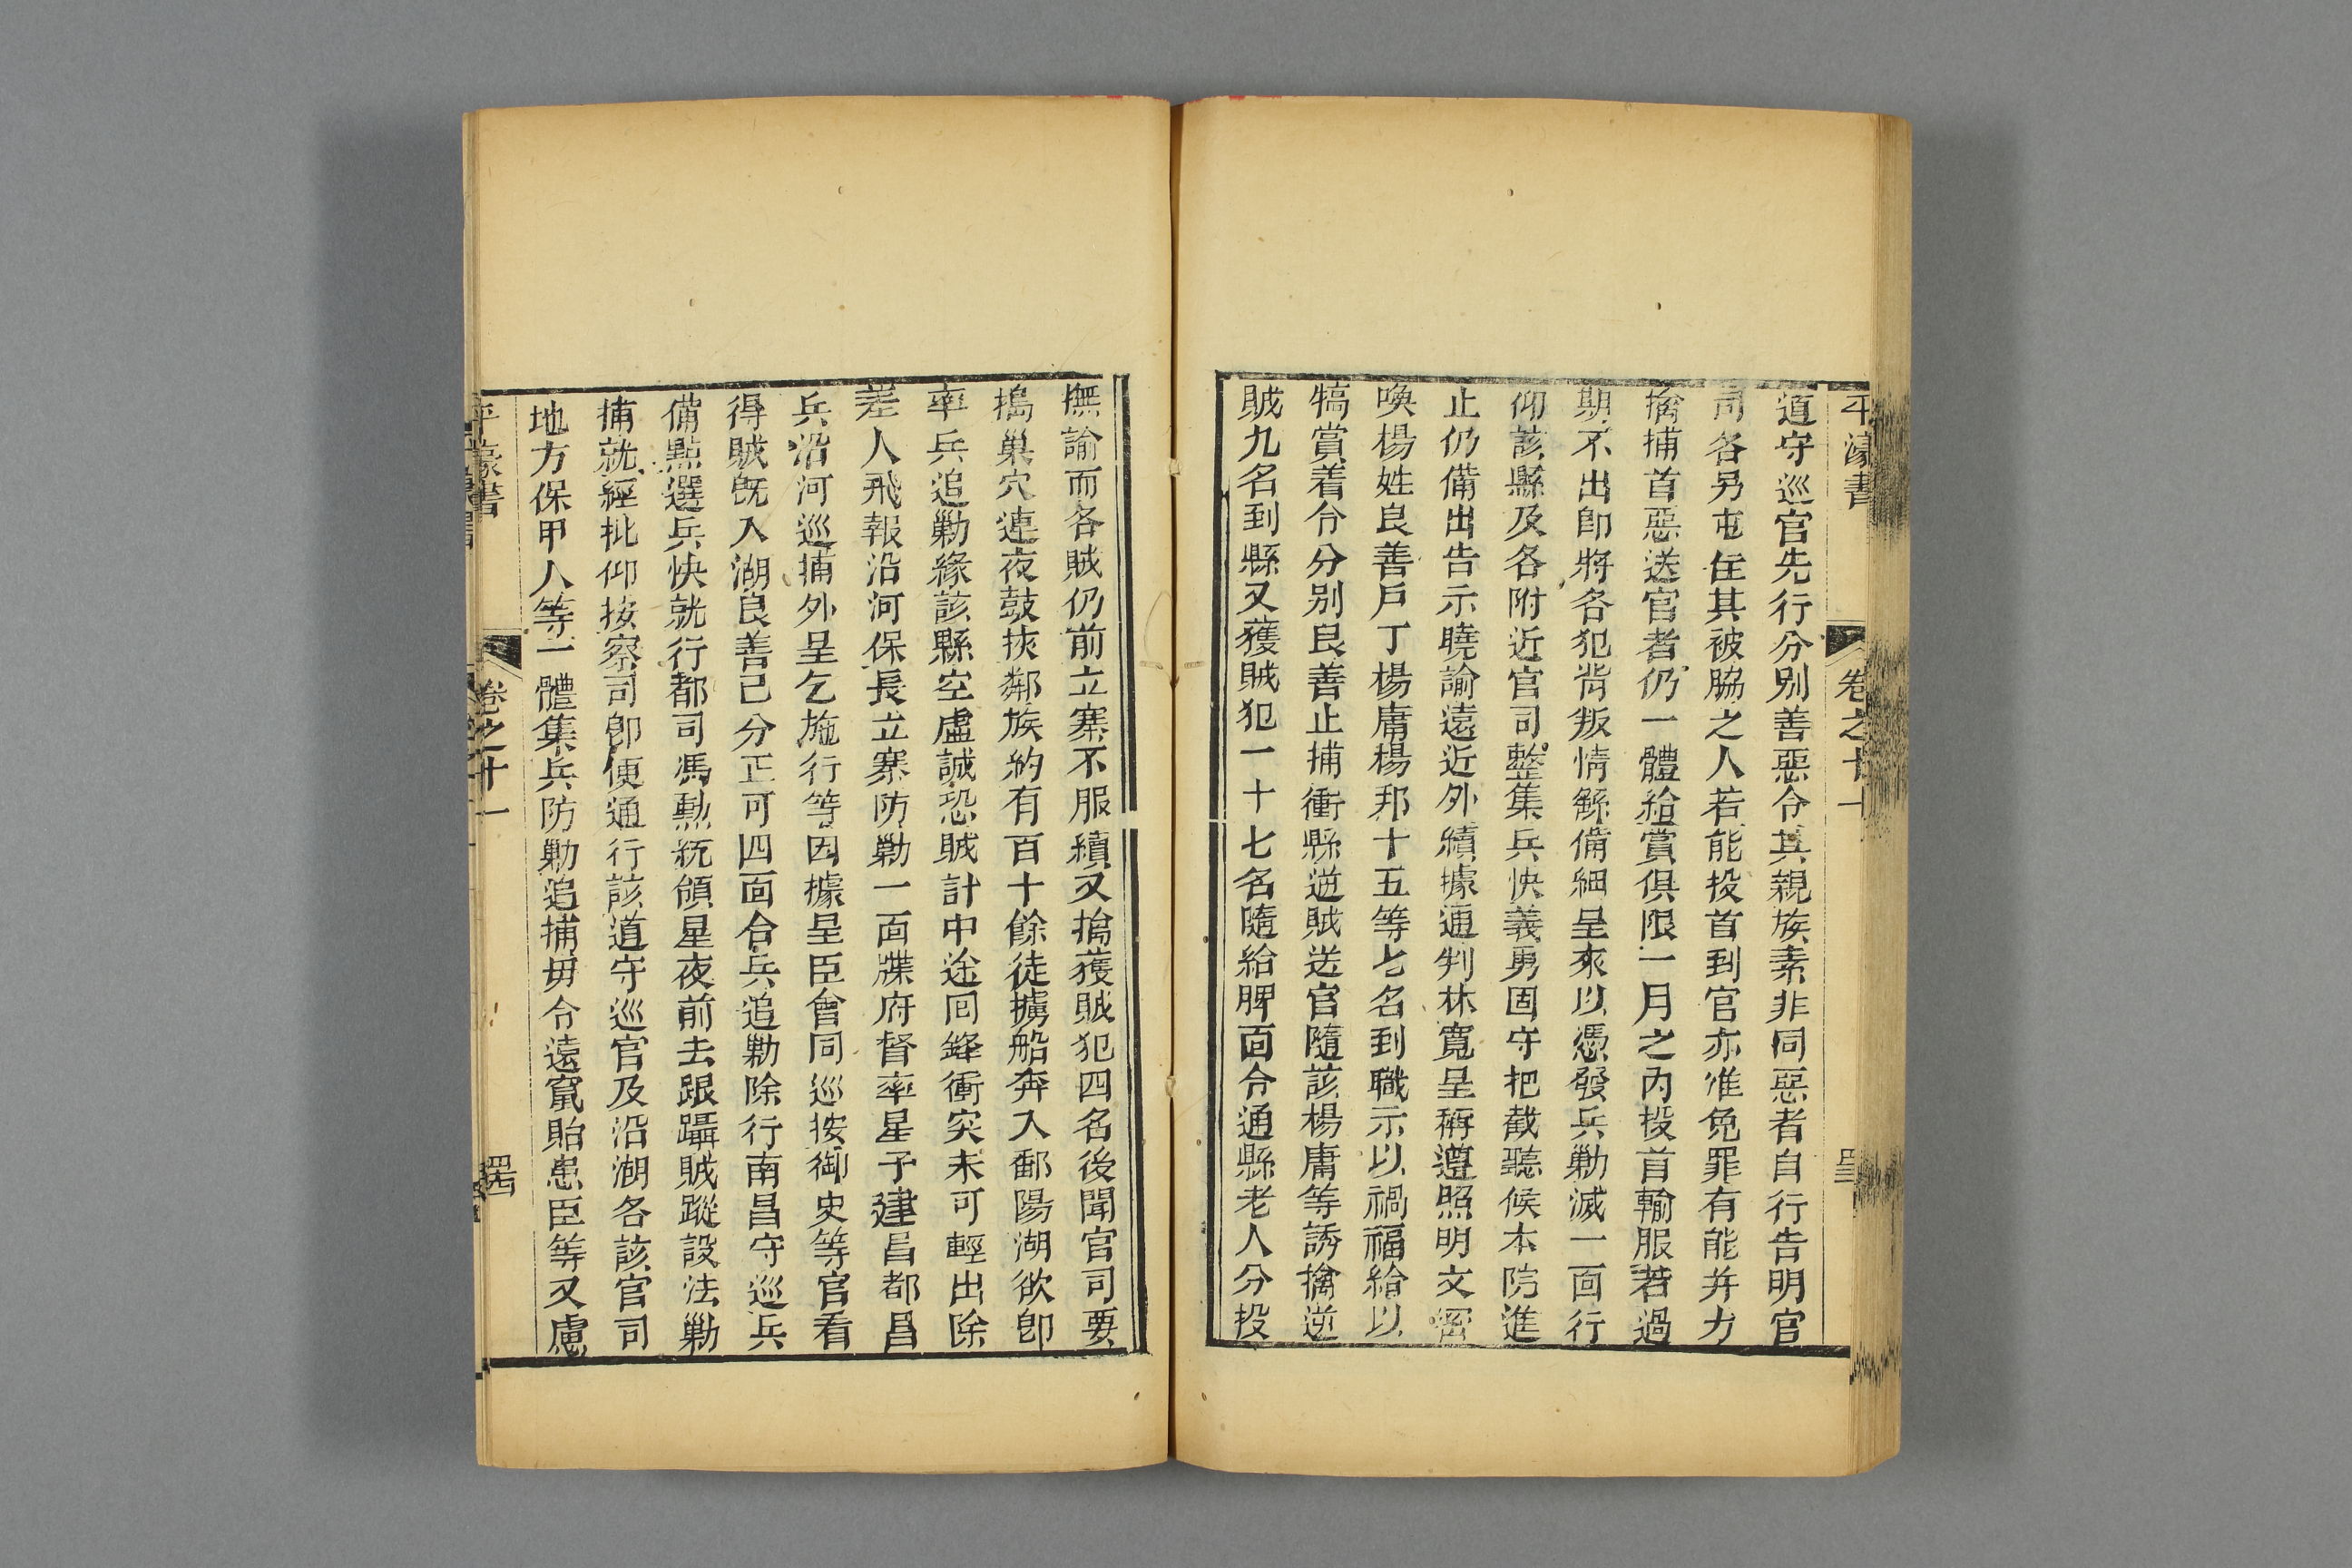 平濠書 卷之十一
道守巡官先行分別善惡令其親族素非同惡者自行告明官
司各另屯住其被脇之人若能投首到官亦准免罪有能并力
擒捕首惡送官者仍一體給賞俱限一月之內投首輸服若過
期不出卽將各犯背叛情繇備細呈來以憑發兵勦滅一面行
仰該縣及各附近官司整集兵快義勇固守把截聽候本院進
止仍備出告示曉諭遠近外續據通判林寬呈稱遵照明文密
喚楊姓良善戶丁楊庸楊邦十五等七名到職示以禍福給以
犒賞着令分別良善止捕衝縣逆賊送官隨該楊庸等誘擒逆
賊九名到縣又獲賊犯一十七名隨給牌面令通縣老人分投
撫諭而各賊仍前立寨不服續又擒獲賊犯四名後聞官司要
搗巢穴連夜鼓挾鄰族約有百十餘徒擄船奔入鄱陽湖欲卽
率兵追勦緣該縣空虛誠恐賊計中途回鋒衝突未可輕出除
差人飛報沿河保長立寨防勦一面牒府督率星子建昌都昌
兵沿河巡捕外呈乞施行等因據呈臣會同巡按御史等官看
得賊旣入湖良善已分正可四面合兵追勦除行南昌守巡兵
備點選兵快就行都司馮勲統領星夜前去跟躡賊蹤設法勦
捕就經批仰按察司卽便通行該道守巡官及沿湖各該官司
地方保甲人等一體集兵防勦追捕毋令遠竄貽患臣等又慮
平濠書 卷之十一